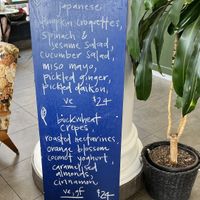 japanese
pumpkin croquettes,
spinach &
sesame salad,
cucumber salad,
miso mayo,
pickled ginger,
pickled daikon,
ve $24
buckwheat
crepes,
roasted nectarines,
orange blossom
coconut yoghurt,
caramelised
almonds,
cinnamon
ve, gf $24